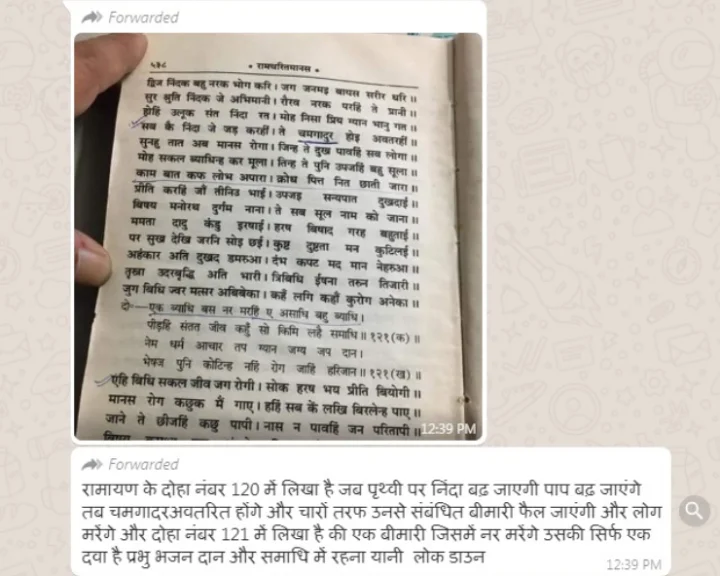 Forwarded
५३८ * रामचरितमानस *
द्विज निंदक बहु नरक भोग करि। जग जनमइ बायस सरीर धरि॥
सुर श्रुति निंदक जे अभिमानी। रौरव नरक परहिं ते प्रानी॥
होहिं उलूक संत निंदा रत। मोह निसा प्रिय ग्यान भानु गत॥
सब कै निंदा जे जड़ करहीं। ते चमगादुर होइ अवतरहीं॥
सुनहु तात अब मानस रोगा। जिन्ह ते दुख पावहिं सब लोगा॥
मोह सकल ब्याधिन्ह कर मूला। तिन्ह ते पुनि उपजहिं बहु सूला॥
काम बात कफ लोभ अपारा। क्रोध पित्त नित छाती जारा॥
प्रीति करहिं जौं तीनिउ भाई। उपजइ सन्यपात दुखदाई॥
बिषय मनोरथ दुर्गम नाना। ते सब सूल नाम को जाना॥
ममता दादु कंडु इरषाई। हरष बिषाद गरह बहुताई॥
पर सुख देखि जरनि सोइ छई। कुष्ट दुष्टता मन कुटिलई॥
अहंकार अति दुखद डमरुआ। दंभ कपट मद मान नेहरुआ॥
तृस्ना उदरबृद्धि अति भारी। त्रिबिधि ईषना तरुन तिजारी॥
जुग बिधि ज्वर मत्सर अबिबेका। कहँ लगि कहौं कुरोग अनेका॥
दो०—एक ब्याधि बस नर मरहिं ए असाधि बहु ब्याधि।
पीड़हिं संतत जीव कहुँ सो किमि लहै समाधि॥१२१(क)॥
नेम धर्म आचार तप ग्यान जग्य जप दान।
भेषज पुनि कोटिन्ह नहिं रोग जाहिं हरिजान॥१२१(ख)॥
एहि बिधि सकल जीव जग रोगी। सोक हरष भय प्रीति बियोगी॥
मानस रोग कछुक मैं गाए। हहिं सब कें लखि बिरलेन्ह पाए॥
जाने ते छीजहिं कछु पापी। नास न पावहिं जन परितापी॥
12:39 PM
Forwarded
रामायण के दोहा नंबर 120 में लिखा है जब पृथ्वी पर निंदा बढ़ जाएगी पाप बढ़ जाएंगे
तब चमगादरअवतरित होंगे और चारों तरफ उनसे संबंधित बीमारी फैल जाएंगी और लोग
मरेंगे और दोहा नंबर 121 में लिखा है की एक बीमारी जिसमें नर मरेंगे उसकी सिर्फ एक
दवा है प्रभु भजन दान और समाधि में रहना यानी लोक डाउन
12:39 PM